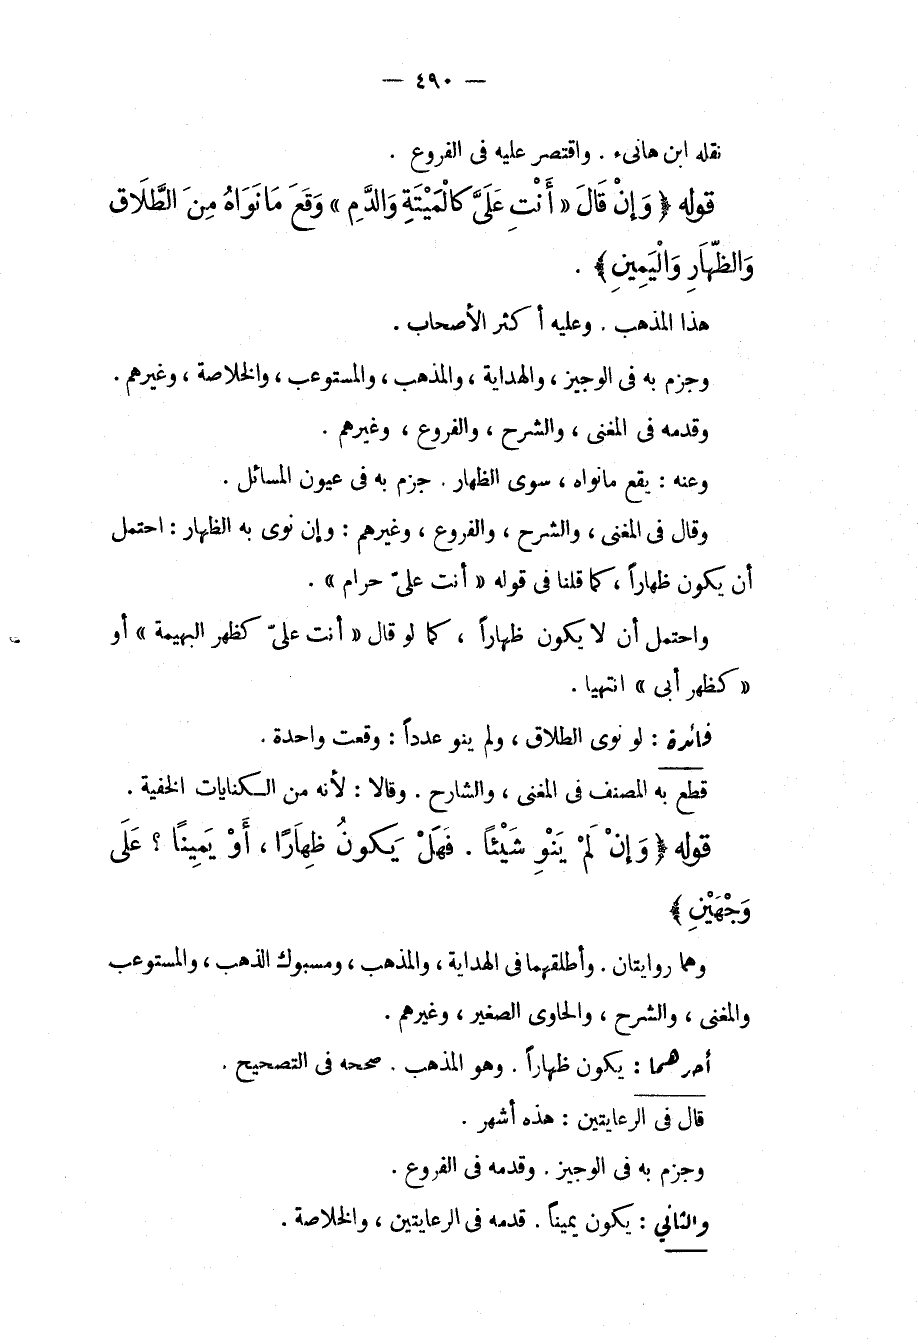 — ٤٩٠ —
نقله ابن هانىء . واقتصر عليه فى الفروع .
قوله ﴿ وَإِنْ قَالَ « أَنْتِ عَلَىَّ كَالْمَيْتَةِ وَالدَّمِ » وَقَعَ مَا نَوَاهُ مِنَ الطَّلَاقِ
وَالظِّهَارِ وَالْيَمِينِ ﴾ .
هذا المذهب . وعليه أكثر الأصحاب .
وجزم به فى الوجيز ، والهداية ، والمذهب ، والمستوعب ، والخلاصة ، وغيرهم .
وقدمه فى المغنى ، والشرح ، والفروع ، وغيرهم .
وعنه : يقع مانواه ، سوى الظهار . جزم به فى عيون المسائل .
وقال فى المغنى ، والشرح ، والفروع ، وغيرهم : وإن نوى به الظهار : احتمل
أن يكون ظهاراً ، كما قلنا فى قوله « أنت علىّ حرام » .
واحتمل أن لا يكون ظهاراً ، كما لو قال « أنت علىّ كظهر البهيمة » أو
« كظهر أبى » انتهيا .
فائدة : لو نوى الطلاق ، ولم ينو عدداً : وقعت واحدة .
قطع به المصنف فى المغنى ، والشارح . وقالا : لأنه من الكنايات الخفية .
قوله ﴿ وَإِنْ لَمْ يَنْوِ شَيْئًا . فَهَلْ يَكُونُ ظِهَارًا ، أَوْ يَمِينًا ؟ عَلَى
وَجْهَيْنِ ﴾
وهما روايتان . وأطلقهما فى الهداية ، والمذهب ، ومسبوك الذهب ، والمستوعب
والمغنى ، والشرح ، والحاوى الصغير ، وغيرهم .
أحدهما : يكون ظهاراً . وهو المذهب . صححه فى التصحيح .
قال فى الرعايتين : هذه أشهر .
وجزم به فى الوجيز . وقدمه فى الفروع .
والثاني : يكون يميناً . قدمه فى الرعايتين ، والخلاصة .